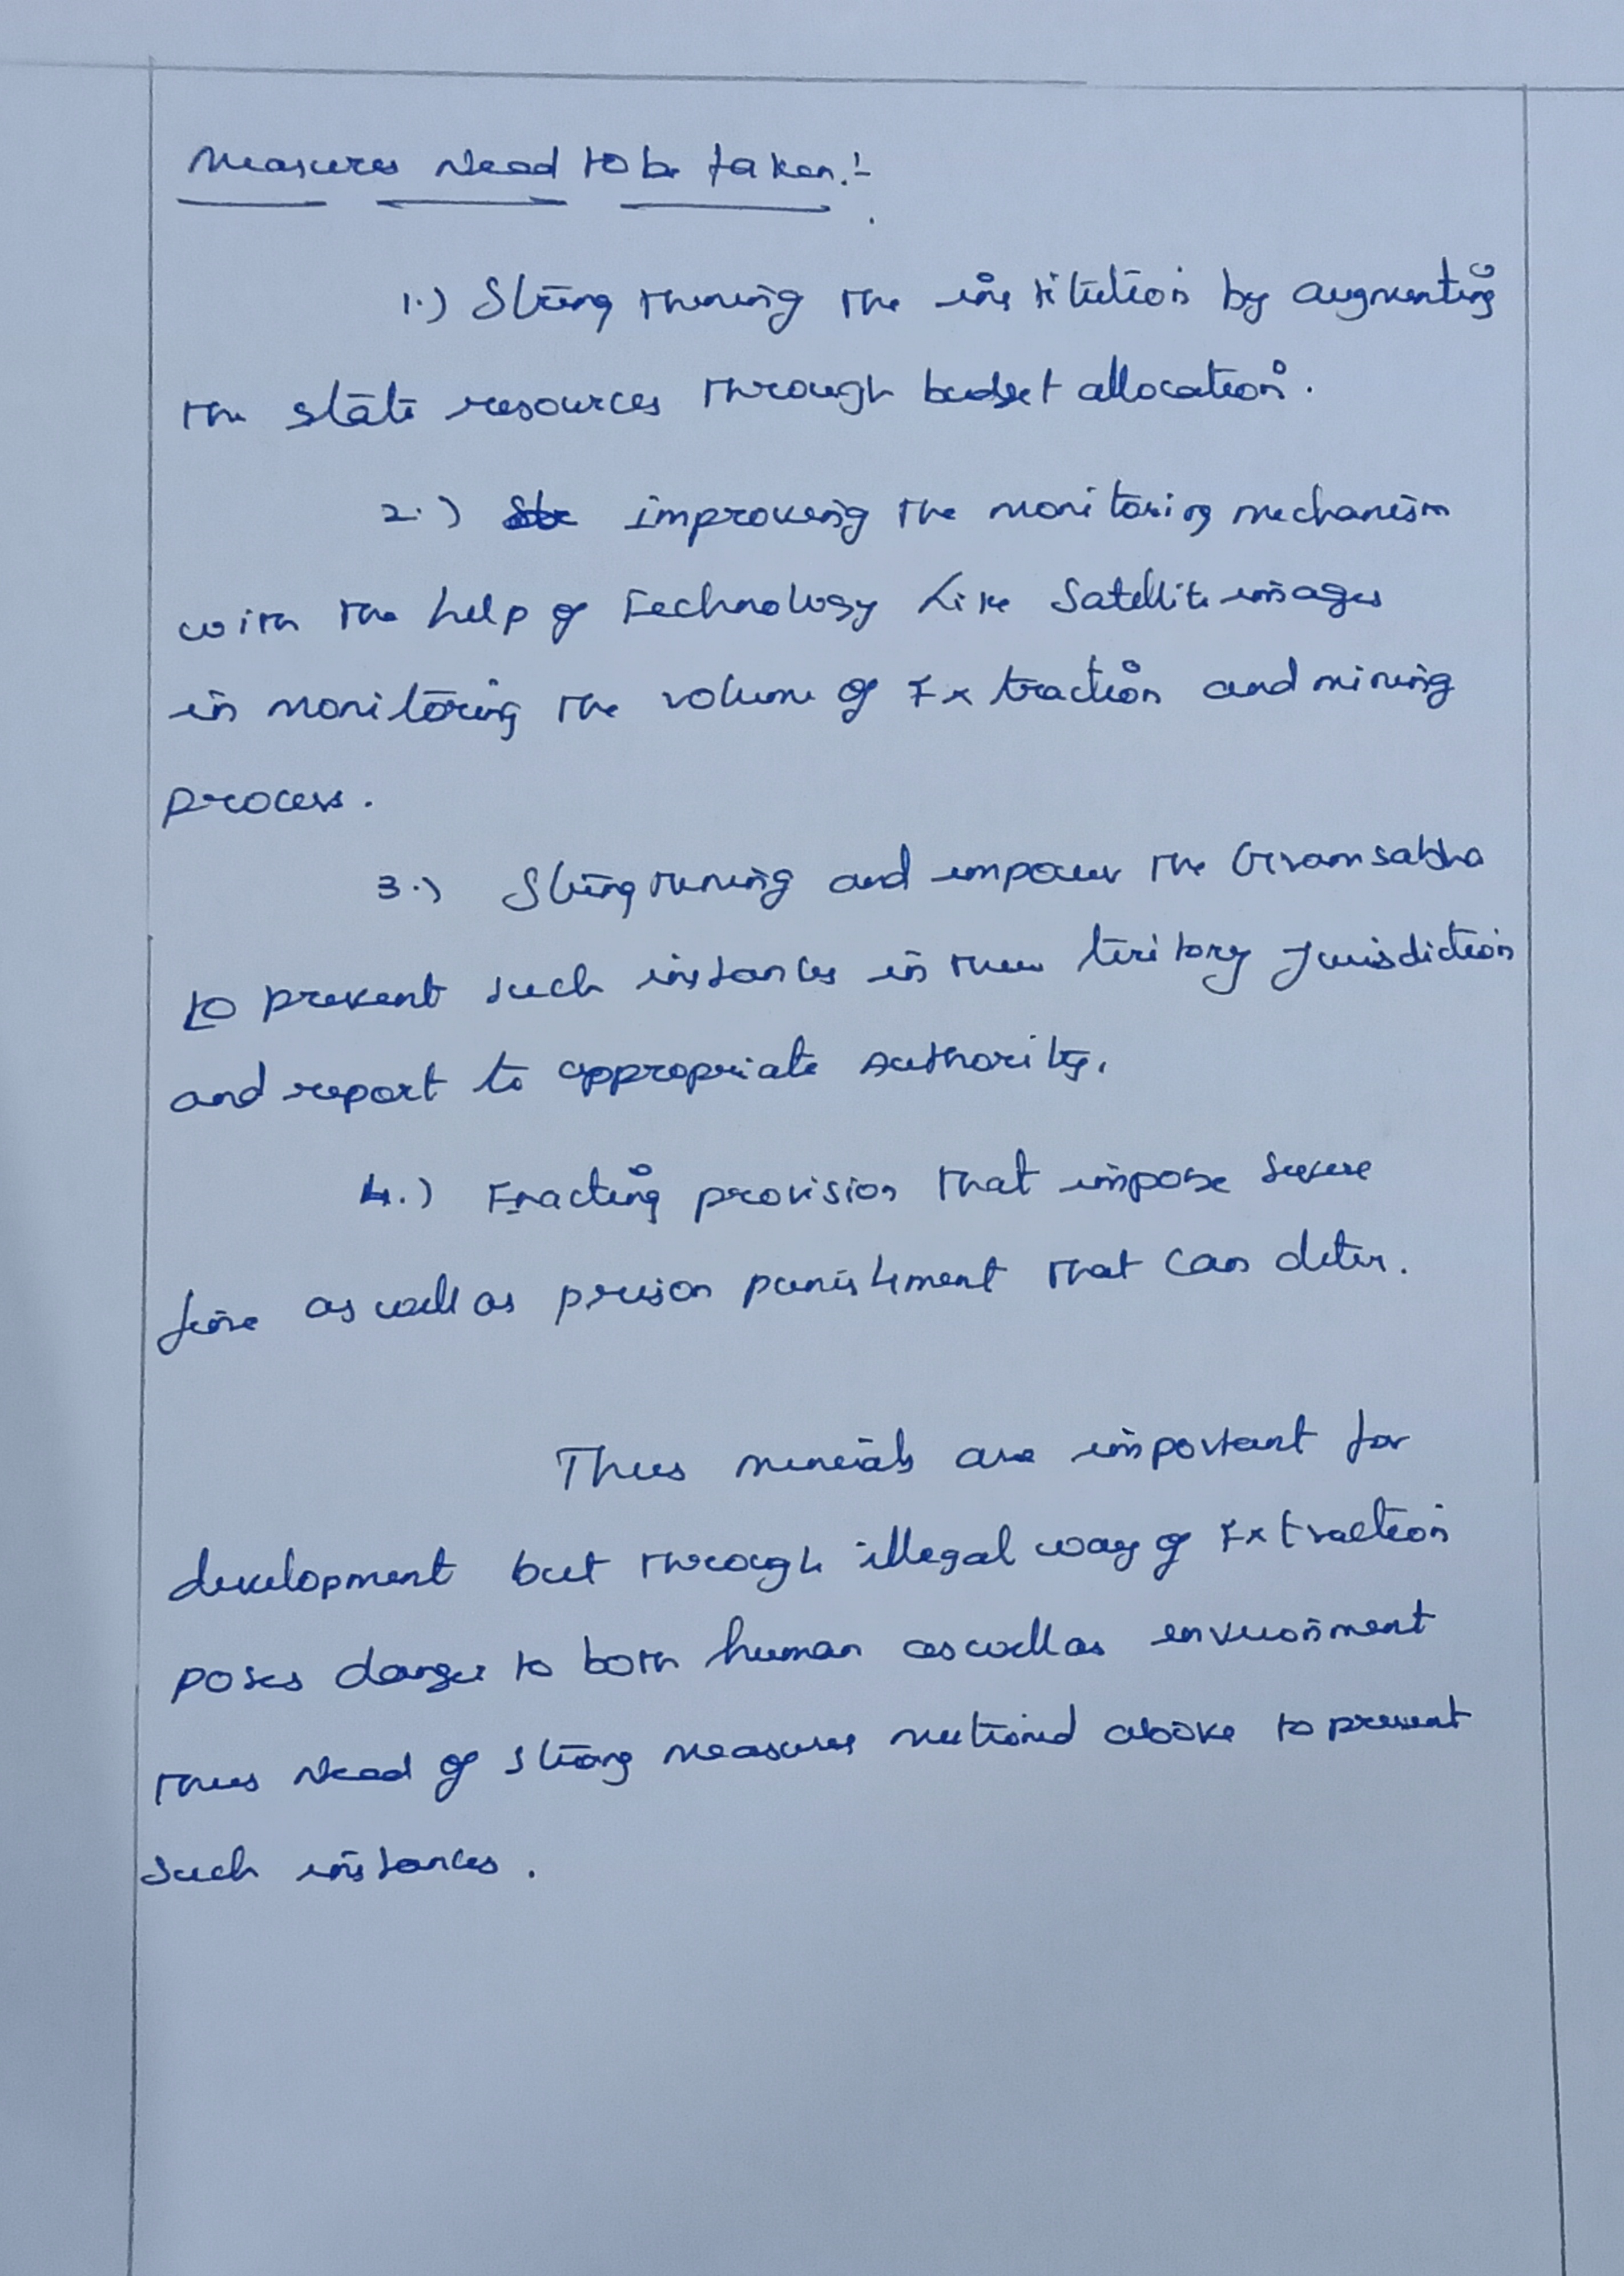 Measures Need to be taken:-
1.) Strengthening the institution by augmenting
the state resources through budget allocation.
2.) improving the monitoring mechanism
with the help of Technology Like Satellite images
in monitoring the volume of Extraction and mining
process.
3.) Strengthening and empower the Gramsabha
to prevent such instances in their teritory Jurisdiction
and report to appropriate Authority.
4.) Enacting provision that impose severe
fine as well as prison punishment that can deter.
Thus minerals are important for
development but through illegal way of Extraction
poses danger to both human as well as environment
thus Need of strong measures metioned above to prevent
such instances.